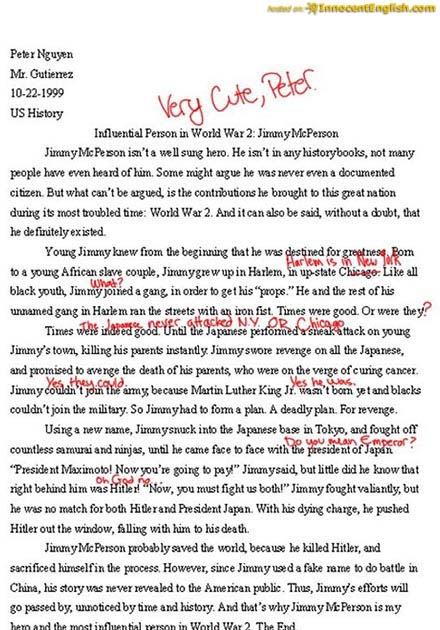 hosted on InnocentEnglish.com
Peter Nguyen
Mr. Gutierrez
10-22-1999
US History
Very Cute, Peter.
Influential Person in World War 2: Jimmy McPerson
Jimmy McPerson isn't a well sung hero. He isn't in any history books, not many
people have even heard of him. Some might argue he was never even a documented
citizen. But what can't be argued, is the contributions he brought to this great nation
during its most troubled time: World War 2. And it can also be said, without a doubt, that
he definitely existed.
Young Jimmy knew from the beginning that he was destined for greatness. Born
Harlem is in New York
to a young African slave couple, Jimmy grew up in Harlem, in up-state Chicago. Like all
What?
black youth, Jimmy joined a gang, in order to get his "props." He and the rest of his
unnamed gang in Harlem ran the streets with an iron fist. Times were good. Or were they?
?
The Japanese never attacked N.Y. OR Chicago
Times were indeed good. Until the Japanese performed a sneak attack on young
Jimmy's town, killing his parents instantly. Jimmy swore revenge on all the Japanese,
and promised to avenge the death of his parents, who were on the verge of curing cancer.
Yes they could. Yes he was.
Jimmy couldn't join the army, because Martin Luther King Jr. wasn't born yet and blacks
couldn't join the military. So Jimmy had to form a plan. A deadly plan. For revenge.
Using a new name, Jimmy snuck into the Japanese base in Tokyo, and fought off
Do you mean Emperor?
countless samurai and ninjas, until he came face to face with the president of Japan.
"President Maximoto! Now you're going to pay!" Jimmy said, but little did he know that
oh God no...
right behind him was Hitler! "Now, you must fight us both!" Jimmy fought valiantly, but
he was no match for both Hitler and President Japan. With his dying charge, he pushed
Hitler out the window, falling with him to his death.
Jimmy McPerson probably saved the world, because he killed Hitler, and
sacrificed himself in the process. However, since Jimmy used a fake name to do battle in
China, his story was never revealed to the American public. Thus, Jimmy's efforts will
go passed by, unnoticed by time and history. And that's why Jimmy McPerson is my
hero and the most influential person in World War 2. The End.